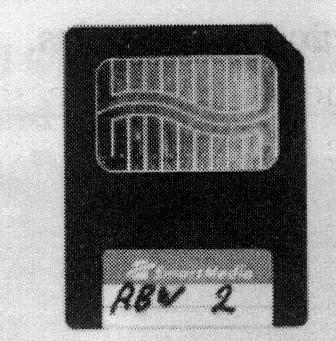 SmartMedia
ABW 2